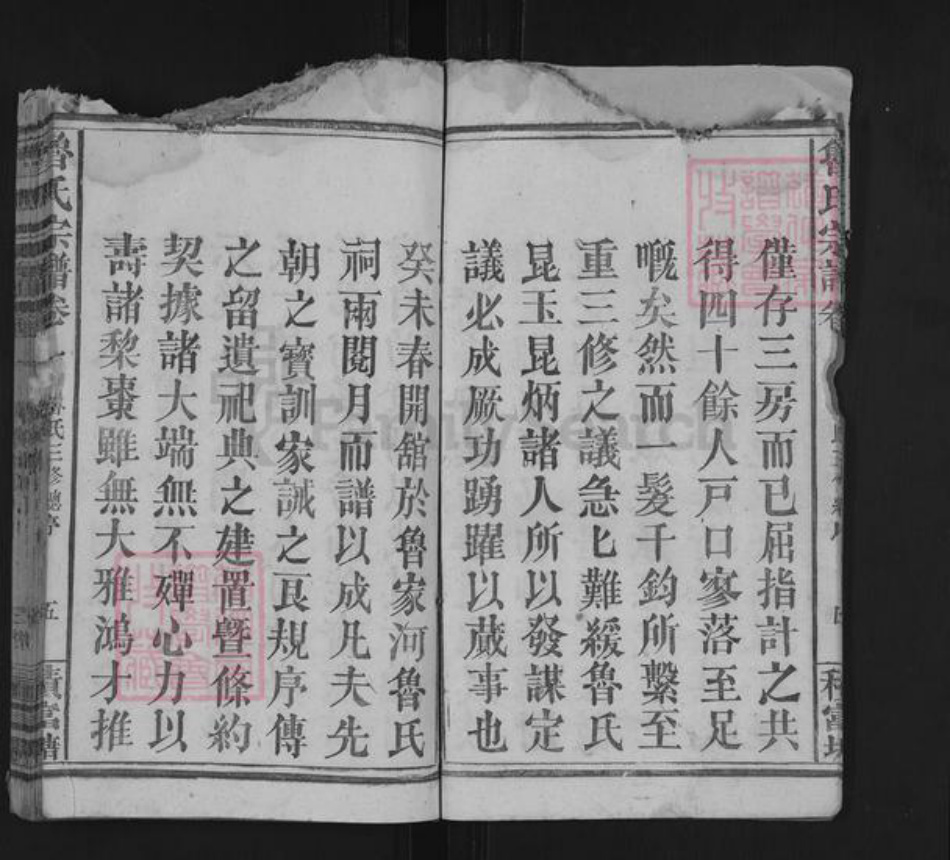 僅存三房而已屈指計之共
得四十餘人戸口寥落至足
嘅矣然而一髮千鈞所繫至
重三修之議急匕難緩魯氏
昆玉昆炳諸人所以發謀定
議必成厥功踴躍以蕆事也
癸未春開舘於魯家河魯氏
祠兩閱月而譜以成凡夫先
朝之寳訓家誡之良規序傳
之留遺祀典之建置暨條約
契據諸大端無不殫心力以
壽諸黎棗雖無大雅鴻才推
魯氏宗譜卷一
魯氏三修總序
五